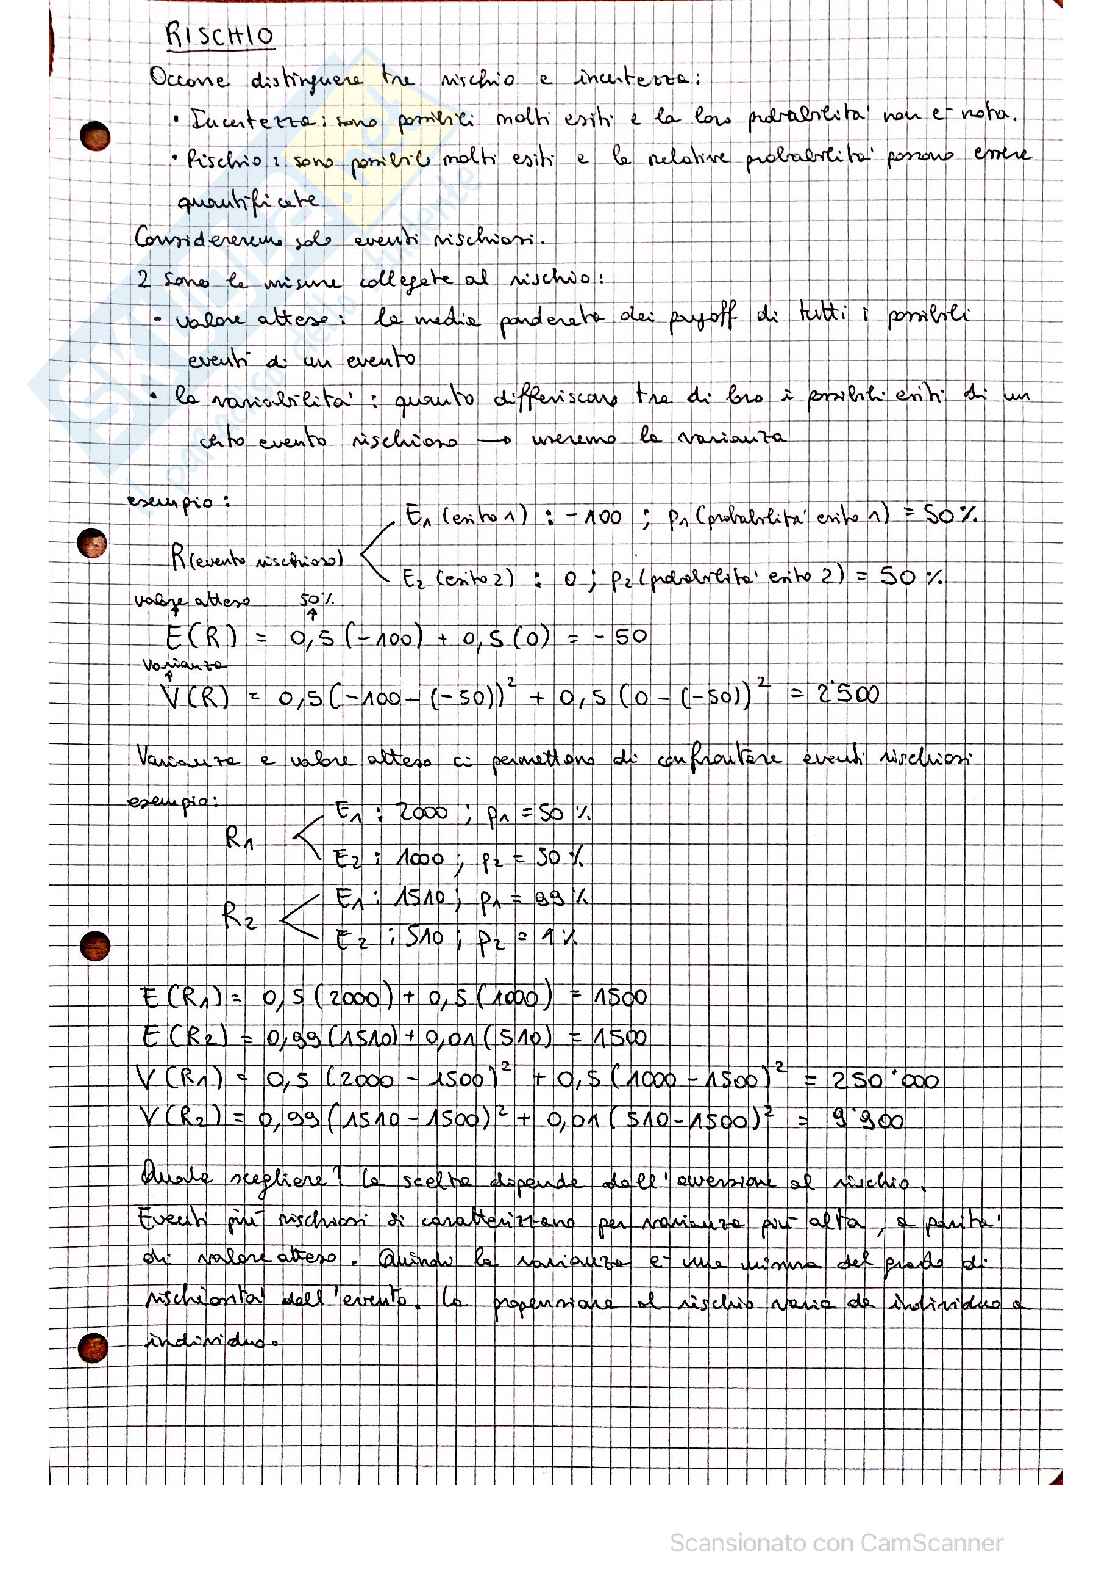 RISCHIO
Occorre distinguere tra rischio e incertezza:
• Incertezza: sono possibili molti esiti e la loro probabilità non è nota.
• Rischio: sono possibili molti esiti e le relative probabilità possono essere
quantificate
Considereremo solo eventi rischiosi.
2 sono le misure collegate al rischio:
• valore atteso: la media ponderata dei payoff di tutti i possibili
eventi di un evento
• la variabilità: quanto differiscono tra di loro i possibili esiti di un
certo evento rischioso → useremo la varianza
esempio:
E1 (esito 1) : -100 ; p1 (probabilità esito 1) = 50%
R (evento rischioso)
E2 (esito 2) : 0 ; p2 (probabilità esito 2) = 50%
valore atteso 50%
E(R) = 0,5 (-100) + 0,5 (0) = -50
varianza
V(R) = 0,5 (-100 - (-50))² + 0,5 (0 - (-50))² = 2'500
Varianza e valore atteso ci permettono di confrontare eventi rischiosi
esempio:
E1 : 2000 ; p1 = 50%
R1
E2 : 1000 ; p2 = 50%
E1 : 1510 ; p1 = 99%
R2
E2 : 510 ; p2 = 1%
E(R1) = 0,5 (2000) + 0,5 (1000) = 1500
E(R2) = 0,99 (1510) + 0,01 (510) = 1500
V(R1) = 0,5 (2000 - 1500)² + 0,5 (1000 - 1500)² = 250'000
V(R2) = 0,99 (1510 - 1500)² + 0,01 (510 - 1500)² = 9'900
Quale scegliere? La scelta dipende dall'avversione al rischio.
Eventi più rischiosi si caratterizzano per varianza più alta, a parità
di valore atteso. Quindi la varianza è una misura del grado di
rischiosità dell'evento. La propensione al rischio varia da individuo a
individuo.
Scansionato con CamScanner